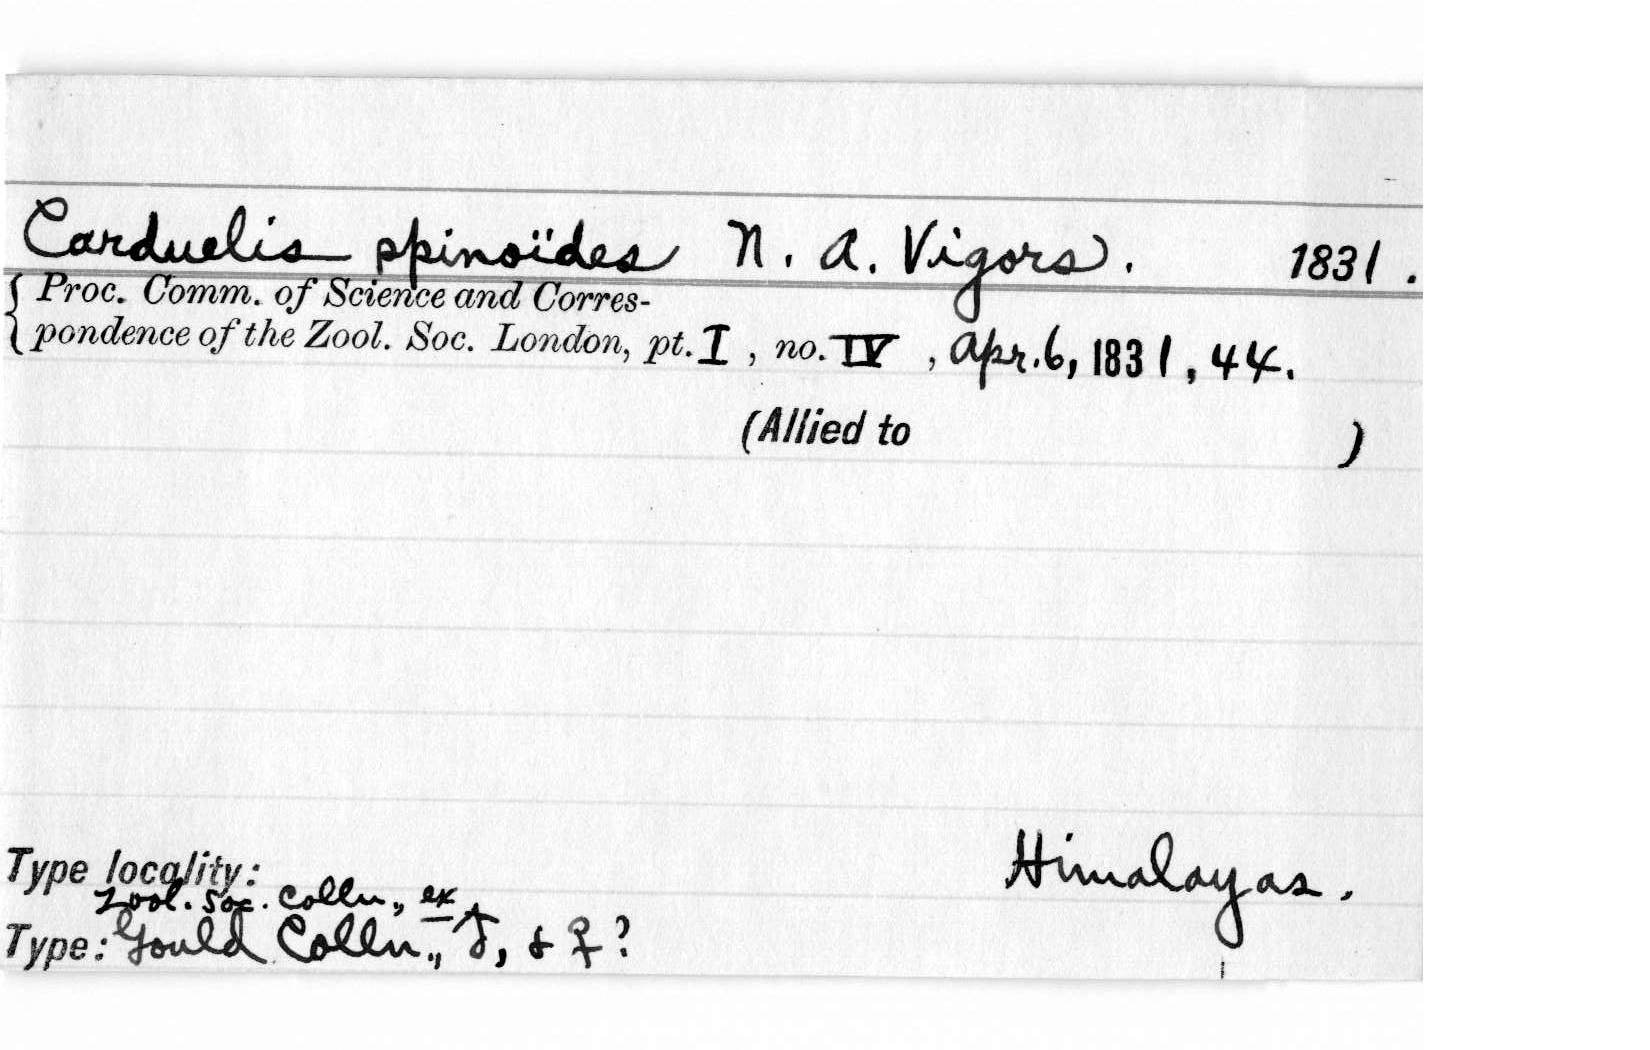 Carduelis spinoïdes N. A. Vigors. 1831.
Proc. Comm. of Science and Corres-
pondence of the Zool. Soc. London, pt. I, no. IV, Apr. 6, 1831, 44.
(Allied to )
Himalayas.
Type locality:
Zool. Soc. Colln., ex
Type: Gould Colln., ♂, & ♀?